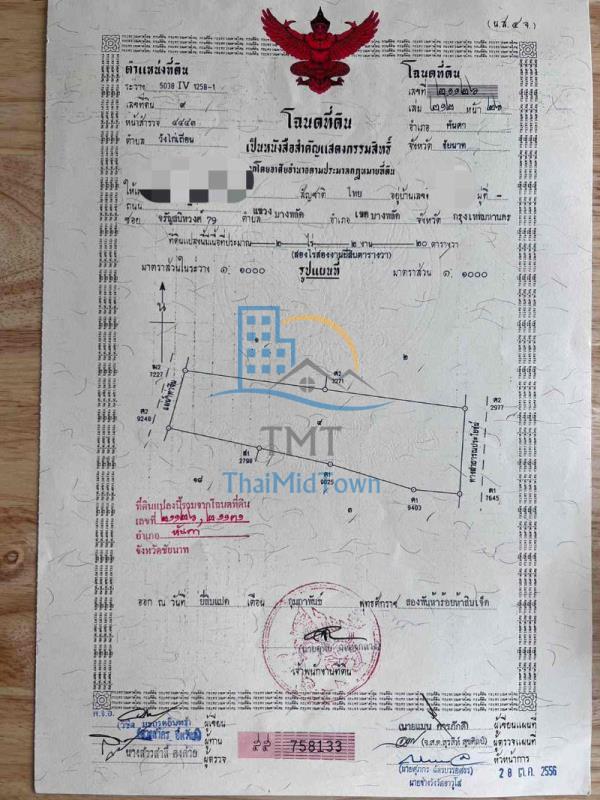 (น.ส. ๔ จ.)
ตำแหน่งที่ดิน
ระวาง 5038 IV 1258-1
เลขที่ดิน ๙
หน้าสำรวจ ๔๔๔๓
ตำบล วังไก่เถื่อน
โฉนดที่ดิน
เลขที่ ๒๑๑๒๖
เล่ม ๒๑๒ หน้า ๒๖
อำเภอ หันคา
จังหวัด ชัยนาท
โฉนดที่ดิน
เป็นหนังสือสำคัญแสดงกรรมสิทธิ์
ออกโดยอาศัยอำนาจตามประมวลกฎหมายที่ดิน
สัญชาติ ไทย อยู่บ้านเลขที่ หมู่ที่
ถนน
ซอย จรัญสนิทวงศ์ 79 ตำบล แขวง บางพลัด อำเภอ เขต บางพลัด จังหวัด กรุงเทพมหานคร
ที่ดินแปลงนี้มีเนื้อที่ประมาณ ๒ ไร่ ๒ งาน ๒๐ ตารางวา
(สองไร่สองงานยี่สิบตารางวา)
มาตราส่วนในระวาง ๑: ๑๐๐๐ รูปแผนที่ มาตราส่วน ๑: ๑๐๐๐
น
๑
๒
7227
ค2
3271
ค2
2977
ค2
9248
แม่น้ำท่าจีน
๙
ทางสาธารณประโยชน์
TMT
ThaiMidTown
ส1
2798
ค1
9025
ค1
9403
ค1
7645
๑๘
๓
ที่ดินแปลงนี้รวมจากโฉนดที่ดิน
เลขที่ ๒๑๑๒๖, ๒๑๑๓๑
อำเภอ หันคา
จังหวัดชัยนาท
ออก ณ วันที่ ยี่สิบแปด เดือน กุมภาพันธ์ พุทธศักราช สองพันห้าร้อยห้าสิบเจ็ด
เจ้าพนักงานที่ดิน
ผู้เขียน
ผู้ทาน
ผู้ตรวจ
758133
ผู้เขียนแผนที่
ผู้ตรวจแผนที่
หัวหน้าการ
นายช่างรังวัดอาวุโส
28 ต.ค. 2556